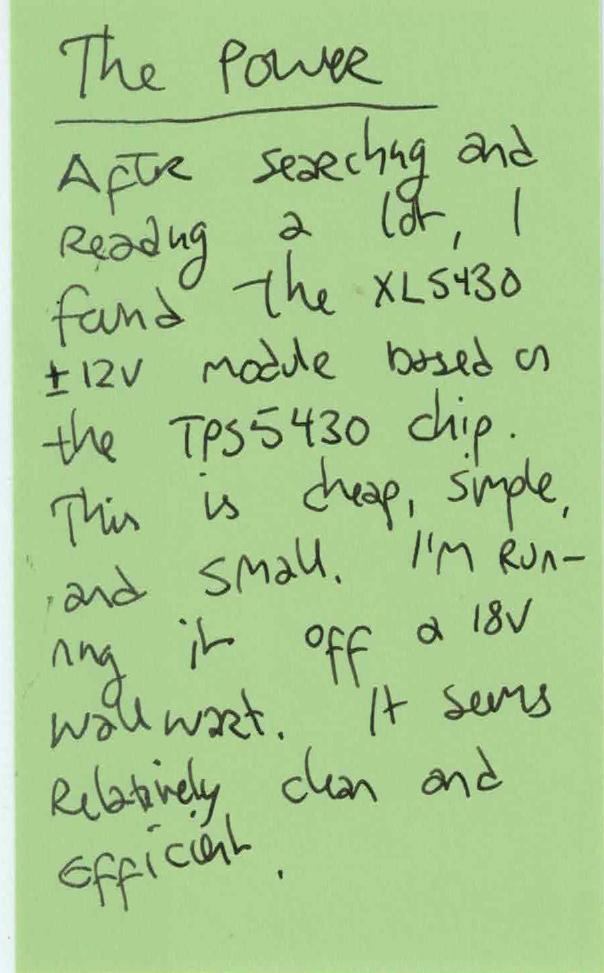 The Power
After searching and
Reading a lot, I
found the XL5430
±12V module based on
the TPS5430 chip.
This is cheap, simple,
and small. I'm Run-
ning it off a 18V
wall wart. It seems
Relatively clean and
Efficient.